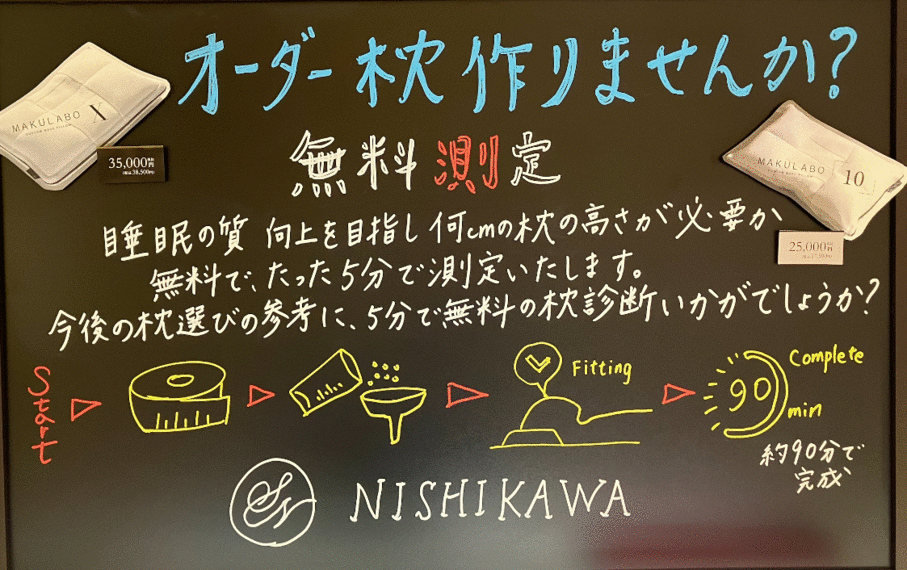 オーダー枕作りませんか?
MAKULABO X
35,000
(税込38,500円)
無料測定
MAKULABO 10
25,000
睡眠の質 向上を目指し何cmの枕の高さが必要か
無料で、たった5分で測定いたします。
今後の枕選びの参考に、5分で無料の枕診断いかがでしょうか?
Start
Fitting
90
Complete
min
約90分で
完成
SN NISHIKAWA